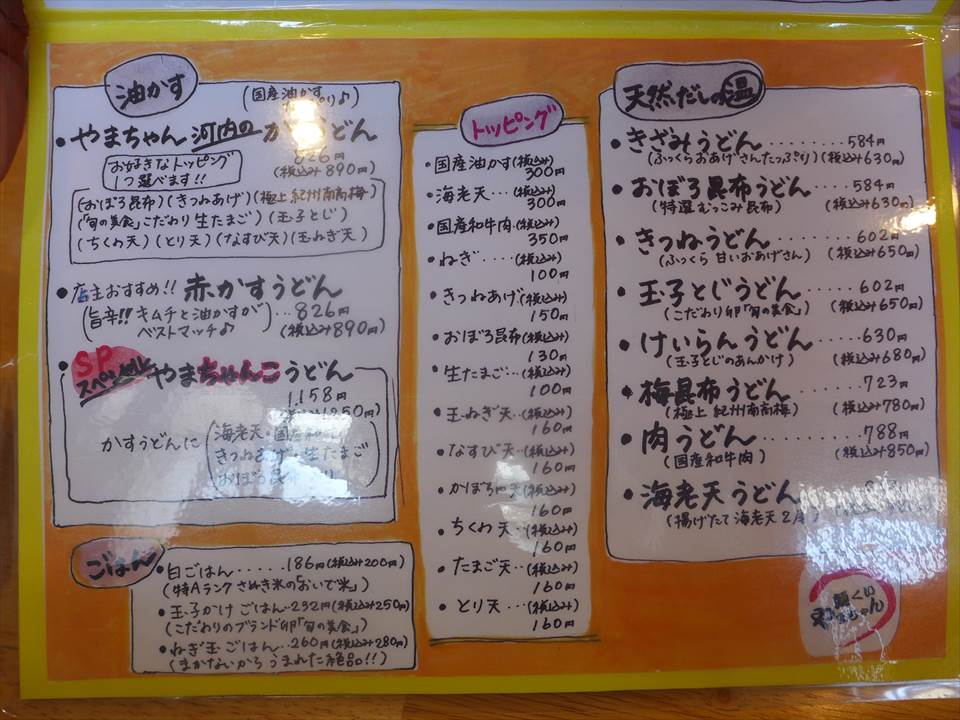 油かす
(国産油かす
♪)
・やまちゃん 河内の かすうどん
826円
(税込み890円)
お好きなトッピング
1つ選べます!!
(おぼろ昆布)(きつねあげ)(極上 紀州南高梅)
(「旬の美食」こだわり 生たまご)(玉子とじ)
(ちくわ天)(とり天)(なすび天)(玉ねぎ天)
・店主おすすめ!! 赤かすうどん
(旨辛!! キムチと油かすが
ベストマッチ♪)
...826円
(税込み890円)
SP
スペシャル
やまちゃんこうどん
1,158円
1250円)
かすうどんに
海老天・国産和
きつねあげ・生たまご
おぼろ昆布
ごはん
・白ごはん......186円(税込み200円)
(特Aランク さぬき米の「おいで米」)
・玉子かけ ごはん..232円(税込み250円)
(こだわりのブランド卵「旬の美食」)
・ねぎ玉ごはん...260円(税込み280円)
(まかないから うまれた絶品!!)
トッピング
・国産油かす(税込み)
300円
・海老天...(税込み)
300円
・国産和牛肉(税込み)
350円
・ねぎ.....(税込み)
100円
・きつねあげ(税込み)
150円
・おぼろ昆布(税込み)
130円
・生たまご..(税込み)
100円
・玉ねぎ天..(税込み)
160円
・なすび天..(税込み)
160円
・かぼちゃ天(税込み)
160円
・ちくわ 天..(税込み)
160円
・たまご天..(税込み)
160円
・とり天...(税込み)
160円
天然だしの温
・きざみうどん.......584円
(ふっくらおあげさんたっぷり)(税込み630円)
・おぼろ昆布うどん....584円
(特選 むっこみ昆布) (税込み630円)
・きつねうどん........602円
(ふっくら 甘いおあげさん) (税込み650円)
・玉子とじうどん.....602円
(こだわり卵「旬の美食」) (税込み650円)
・けいらんうどん.....630円
(玉子とじのあんかけ) (税込み680円)
・梅昆布うどん......723円
(極上 紀州南高梅) (税込み780円)
・肉うどん.........788円
(国産和牛肉) (税込み850円)
・海老天うどん
(揚げたて 海老天 2
くい
ちゃん